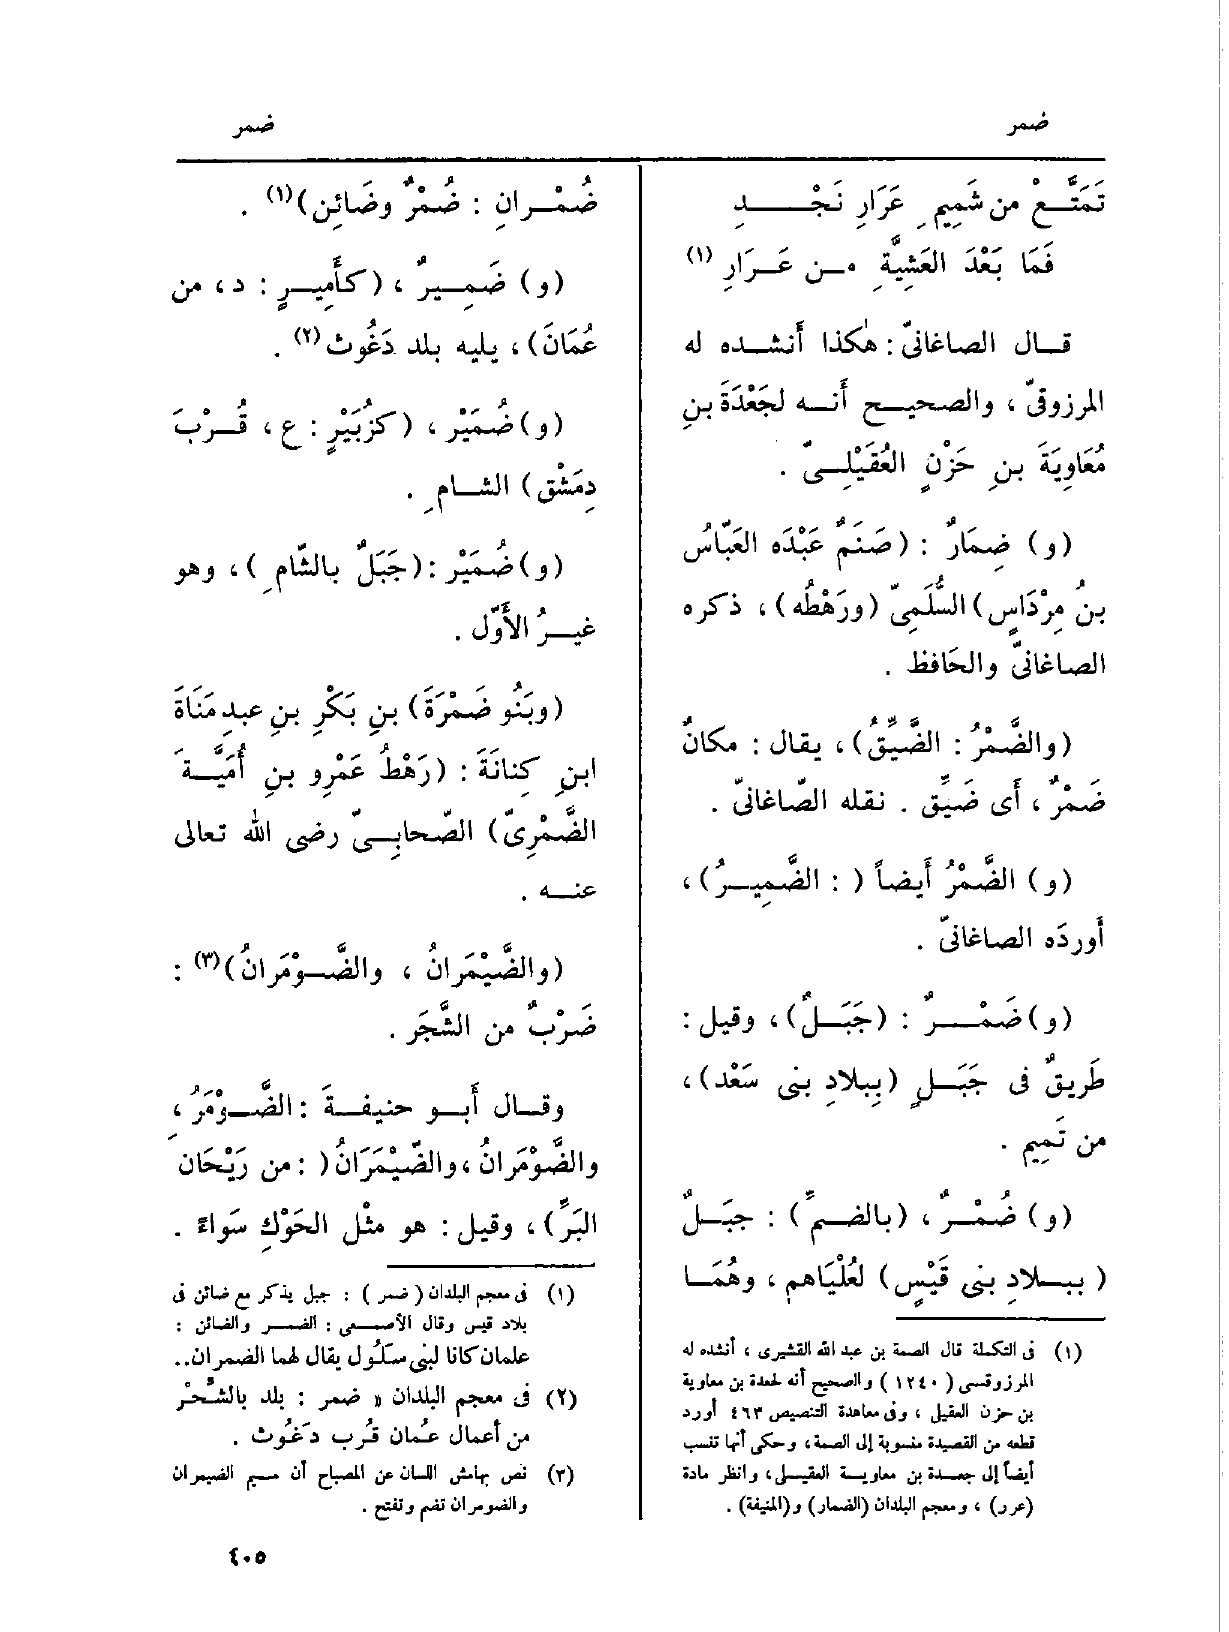 ضمر
ضمر
تَمَتَّعْ من شَمِيمِ عَرَارِ نَجْدِ
فَمَا بَعْدَ العَشِيَّةِ من عَرَارِ (١)
قال الصاغانىّ : هٰكذا أَنشده له
المرزوقىّ ، والصحيح أَنه لجَعْدَةَ بنِ
مُعَاوِيَةَ بنِ حَزْنٍ العُقَيْلِىّ .
(و) ضِمَارٌ : (صَنَمٌ عَبْدَه العَبّاسُ
بنُ مِرْدَاسٍ) السُّلَمِىّ (ورَهْطُه) ، ذكره
الصاغانىّ والحَافظ .
(والضَّمْرُ : الضَّيِّقُ) ، يقال : مكانٌ
ضَمْرٌ ، أَى ضَيِّق . نقله الصّاغانىّ .
(و) الضَّمْرُ أَيضاً ( : الضَّمِيرُ) ،
أَوردَه الصاغانىّ .
(و) ضَمْرٌ : (جَبَلٌ) ، وقيل :
طَرِيقٌ فى جَبَلٍ (بِبلادِ بنى سَعْد) ،
من تَمِيم .
(و) ضُمْرٌ ، (بالضمّ) : جبَلٌ
(ببلادِ بنى قَيْسٍ) لعُلْيَاهم ، وهُمَا
(١) فى التكملة قال الصمة بن عبد الله القشيرى ، أنشده له
المرزوقى ( ١٢٤٠ ) والصحيح أنه لجعدة بن معاوية
بن حزن العقيل ، وفى معاهدة التنصيص ٤٦٣ أورد
قطعه من القصيدة منسوبة إلى الصمة ، وحكى أنها تنسب
أيضاً إلى جعدة بن معاوية العقيلى ، وانظر مادة
(عرر) ، ومعجم البلدان (الضمار) و(المنيفة) .
ضُمْرانِ : ضُمْرٌ وضَائِن) (١) .
(و) ضَمِيرٌ ، (كأَمِيرٍ : د ، من
عُمَانَ) ، يليه بلد دَغُوث (٢) .
(و) ضُمَيْر ، (كزُبَيْرٍ : ع ، قُرْبَ
دِمَشْق) الشامِ .
(و) ضُمَيْر : (جَبَلٌ بالشّامِ ) ، وهو
غيرُ الأَوّل .
(وبَنُو ضَمْرَةَ) بنِ بَكْرِ بنِ عبدِ مَنَاةَ
ابنِ كِنانَةَ : (رَهْطُ عَمْرِو بنِ أُمَيَّةَ
الضَّمْرِىّ) الصّحابِىّ رضى الله تعالى
عنه .
(والضَّيْمَرانُ ، والضَّوْمَرانُ) (٣) :
ضَرْبٌ من الشَّجَر .
وقال أَبو حنيفةَ : الضَّوْمَرُ ،
والضَّوْمَرانُ ، والضَّيْمَرَانُ ( : من رَيْحَان
البَرِّ) ، وقيل : هو مثْل الحَوْكِ سَواءً .
(١) فى معجم البلدان ( ضمر ) : جبل يذكر مع ضائن فى
بلاد قيس وقال الأصمعى : الضمر والضائن :
علمان كانا لبنى سلول يقال لهما الضمران ..
(٢) فى معجم البلدان « ضمر : بلد بالشَّحْر
من أعمال عُمان قُرب دَغُوث .
(٣) نص بهامش اللسان عن المصباح أن ميم الضيمران
والضومران تضم وتفتح .
٤٠٥